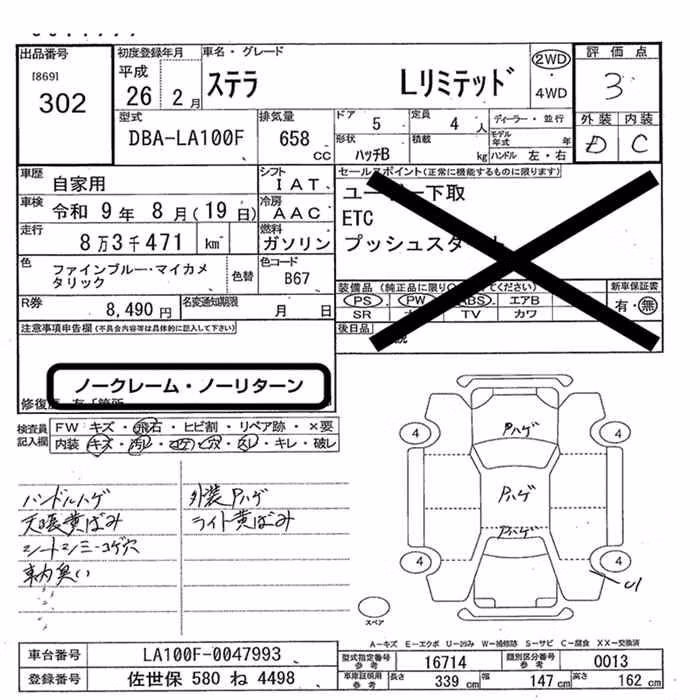 出品番号 初度登録年月 車名・グレード 2WD 評価点
[869] 平成 ステラ Lリミテッド ・ 3
302 26 2月 4WD
型式 排気量 ドア 5 定員 4人 ディーラー・並行 外装 内装
DBA-LA100F 658 CC 形状 ハッチB 積載 kg モデル年式 年 D C
ハンドル 左・右
車歴 自家用 シフト IAT セールスポイント(正常に機能するものに限ります)
車検 令和 9年 8月(19日) 冷房 AAC ETC
走行 8万3千471 km 燃料 ガソリン
色 ファインブルー・マイカメタリック 色替 色コード B67 新車保証書
PS PW ABS エアB 有・無
R券 8,490円 名変通知期限 月 日 SR TV カワ
注意事項申告欄(不具合内容等は具体的に記入して下さい) 後日品
ノークレーム・ノーリターン
検査員記入欄 FW キズ・飛石・ヒビ割・リペア跡・×要
内装 キズ・汚れ・コゲ・穴・スレ・キレ・破レ
ハンドルハゲ 外装Pハゲ
天張黄ばみ ライト黄ばみ
シートシミ・コゲ穴
車内臭い
4 4
Pハゲ
Pハゲ
Pハゲ
4 4
U1
スペア
A-キズ E-エクボ U-凹み W-補修跡 S-サビ C-腐食 XX-交換済
車台番号 LA100F-0047993 型式指定番号 参考 16714 類別区分番号 参考 0013
登録番号 佐世保 580 ね 4498 車庫証明用 参考 長さ 339 cm 幅 147 cm 高さ 162 cm